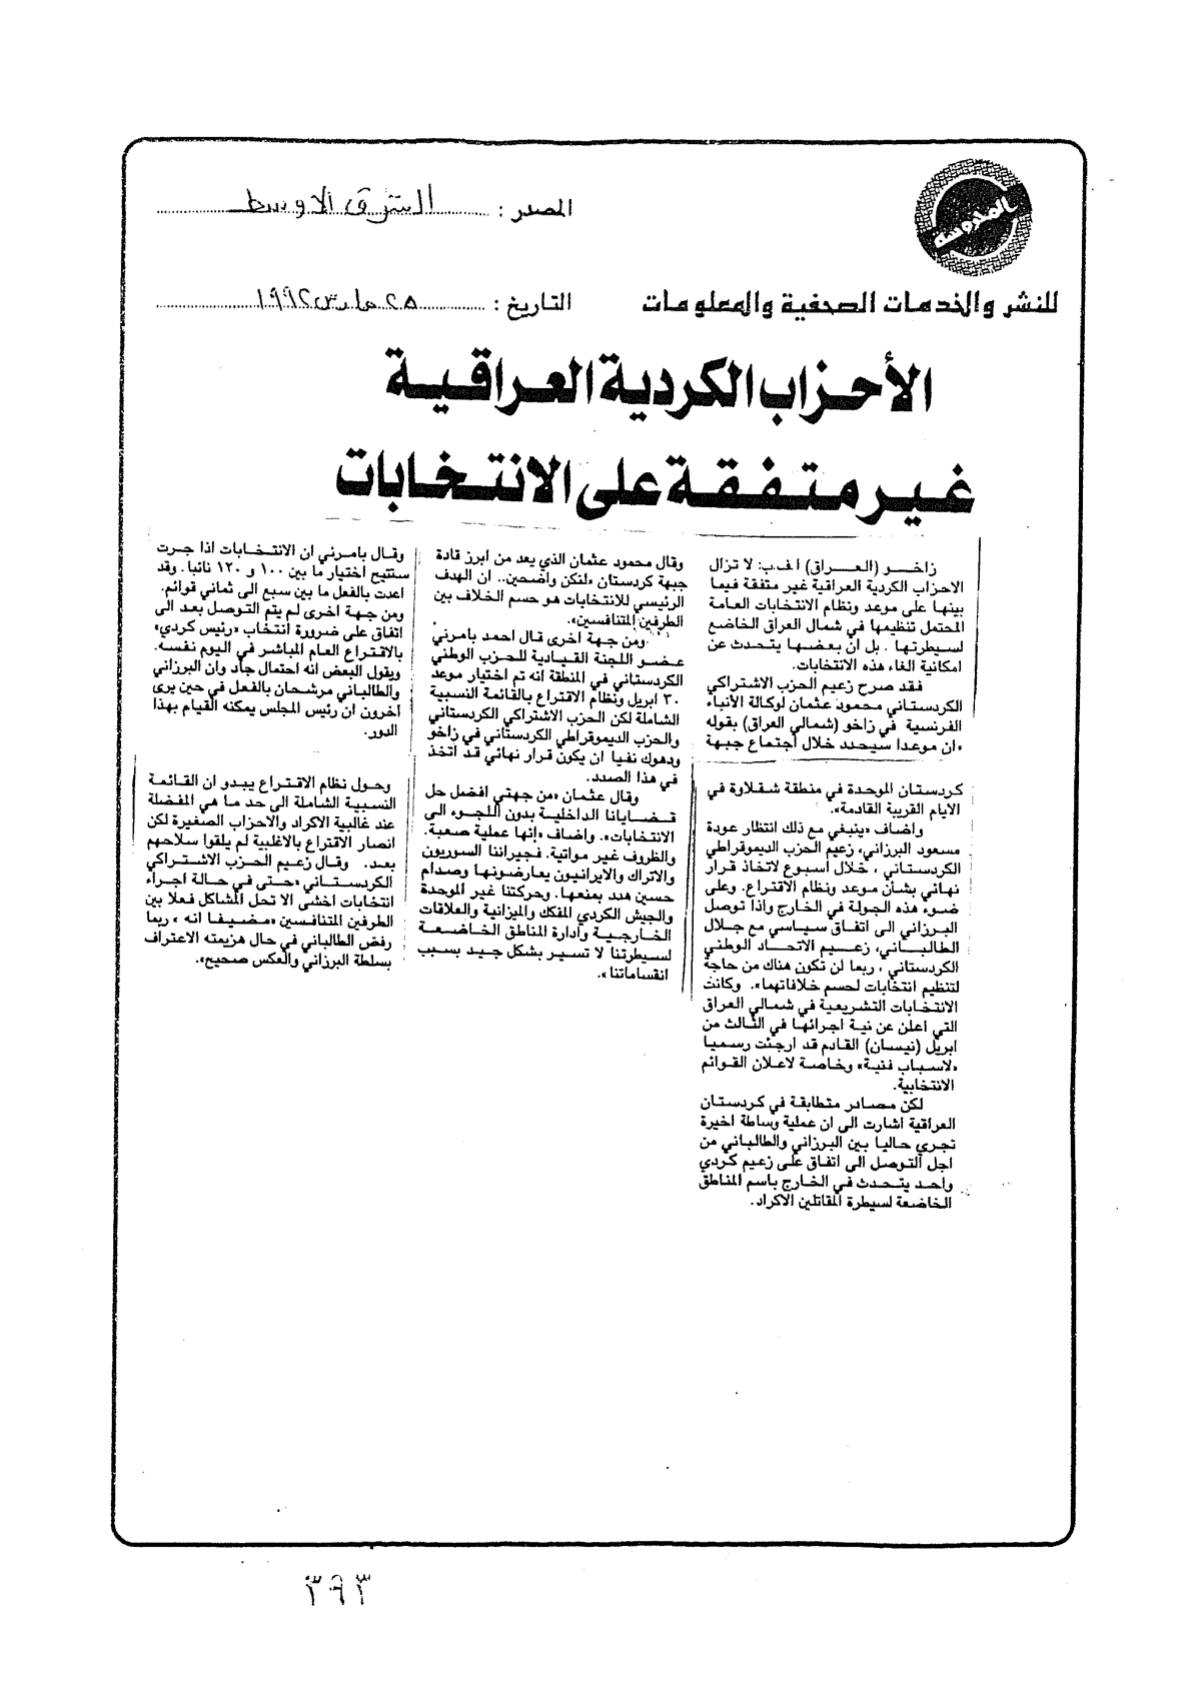 المدوسة
المصدر : الشرق الاوسط
للنشر والخدمات الصحفية والمعلومات
التاريخ : ٢٥ مارس ١٩٩٢
الأحزاب الكردية العراقية
غير متفقة على الانتخابات
زاخو (العراق) ا ف ب: لا تزال
الاحزاب الكردية العراقية غير متفقة فيما
بينها على موعد ونظام الانتخابات العامة
المحتمل تنظيمها في شمال العراق الخاضع
لسيطرتها . بل ان بعضها يتحدث عن
امكانية الغاء هذه الانتخابات.
فقد صرح زعيم الحزب الاشتراكي
الكردستاني محمود عثمان لوكالة الأنباء
الفرنسية في زاخو (شمالي العراق) بقوله
«ان موعدا سيحدد خلال اجتماع جبهة
كردستان الموحدة في منطقة شقلاوة في
الايام القريبة القادمة».
واضاف «ينبغي مع ذلك انتظار عودة
مسعود البرزاني، زعيم الحزب الديموقراطي
الكردستاني ، خلال أسبوع لاتخاذ قرار
نهائي بشأن موعد ونظام الاقتراع. وعلى
ضوء هذه الجولة في الخارج واذا توصل
البرزاني الى اتفاق سياسي مع جلال
الطالباني، زعيم الاتحاد الوطني
الكردستاني ، ربما لن تكون هناك من حاجة
لتنظيم انتخابات لحسم خلافاتهما». وكانت
الانتخابات التشريعية في شمالي العراق
التي اعلن عن نية اجرائها في الثالث من
ابريل (نيسان) القادم قد ارجئت رسميا
«لاسباب فنية» وخاصة لاعلان القوائم
الانتخابية.
لكن مصادر متطابقة في كردستان
العراقية اشارت الى ان عملية وساطة اخيرة
تجري حاليا بين البرزاني والطالباني من
اجل التوصل الى اتفاق على زعيم كردي
واحد يتحدث في الخارج باسم المناطق
الخاضعة لسيطرة المقاتلين الاكراد.
وقال محمود عثمان الذي يعد من ابرز قادة
جبهة كردستان «لنكن واضحين.. ان الهدف
الرئيسي للانتخابات هو حسم الخلاف بين
الطرفين المتنافسين».
ومن جهة اخرى قال احمد بامرني
عضو اللجنة القيادية للحزب الوطني
الكردستاني في المنطقة انه تم اختيار موعد
٣٠ ابريل ونظام الاقتراع بالقائمة النسبية
الشاملة لكن الحزب الاشتراكي الكردستاني
والحزب الديموقراطي الكردستاني في زاخو
ودهوك نفيا ان يكون قرار نهائي قد اتخذ
في هذا الصدد.
وقال عثمان «من جهتي افضل حل
قضايانا الداخلية بدون اللجوء الى
الانتخابات». واضاف «إنها عملية صعبة.
والظروف غير مواتية. فجيراننا السوريون
والاتراك والايرانيون يعارضونها وصدام
حسين هدد بمنعها. وحركتنا غير الموحدة
والجيش الكردي المفكك والميزانية والعلاقات
الخارجية وادارة المناطق الخاضعة
لسيطرتنا لا تسير بشكل جيد بسبب
انقساماتنا ».
وقال بامرني ان الانتخابات اذا جرت
ستتيح اختيار ما بين ١٠٠ و ١٢٠ نائبا. وقد
اعدت بالفعل ما بين سبع الى ثماني قوائم.
ومن جهة اخرى لم يتم التوصل بعد الى
اتفاق على ضرورة انتخاب «رئيس كردي»
بالاقتراع العام المباشر في اليوم نفسه.
ويقول البعض انه احتمال جاد وان البرزاني
والطالباني مرشحان بالفعل في حين يرى
آخرون ان رئيس المجلس يمكنه القيام بهذا
الدور.
وحول نظام الاقتراع يبدو ان القائمة
النسبية الشاملة الى حد ما هي المفضلة
عند غالبية الاكراد والاحزاب الصغيرة لكن
انصار الاقتراع بالاغلبية لم يلقوا سلاحهم
بعد. وقال زعيم الحزب الاشتراكي
الكردستاني «حتى في حالة اجراء
انتخابات اخشى الا تحل المشاكل فعلا بين
الطرفين المتنافسين «مضيفا انه » ربما
رفض الطالباني في حال هزيمته الاعتراف
بسلطة البرزاني والعكس صحيح».
٣٩٣